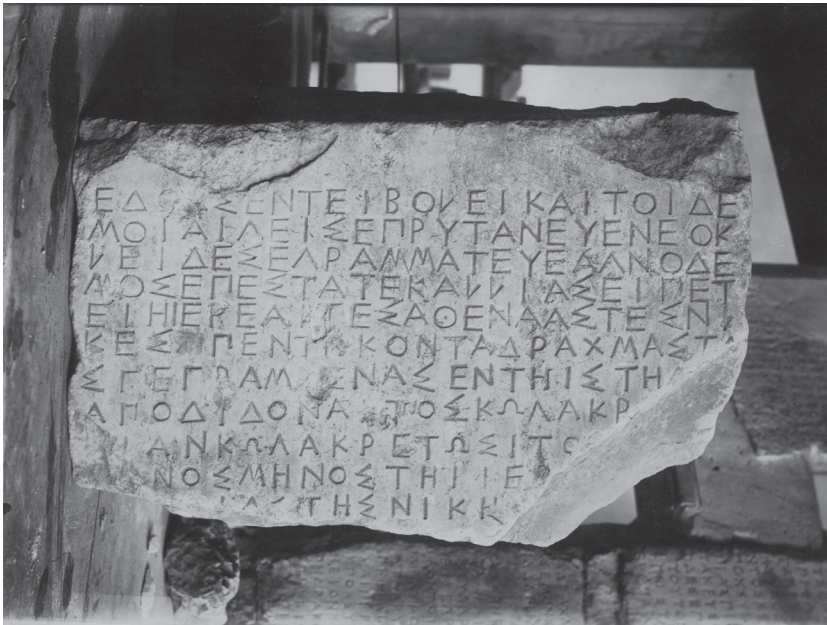 ΕΔΟΧΣΕΝΤΕΙΒΟΛΕΙΚΑΙΤΟΙΔΕ
ΜΟΙΑΙΓΕΙΣΕΠΡΥΤΑΝΕΥΕΝΕΟΚ
ΛΕΙΔΕΣΕΓΡΑΜΜΑΤΕΥΕΑΓΝΟΔΕ
ΜΟΣΕΠΕΣΤΑΤΕΚΑΛΛΙΑΣΕΙΠΕΤ
ΕΙΗΙΕΡΕΑΙΤΕΣΑΘΕΝΑΑΣΤΕΣΝΙ
ΚΕΣΠΕΝΤΕΚΟΝΤΑΔΡΑΧΜΑΣΤΑ
ΣΓΕΓΡΑΜΜΕΝΑΣΕΝΤΗΙΣΤΗΛ
ΑΠΟΔΙΔΟΝΑΙΤΟΣΚΩΛΑΚΡ
ΙΑΝΚΩΛΑΚΡΕΤΩΣΙΤΟ
ΝΟΣΜΗΝΟΣΤΗΙΙΕ
ΑΣΤΗΣΝΙΚΗ